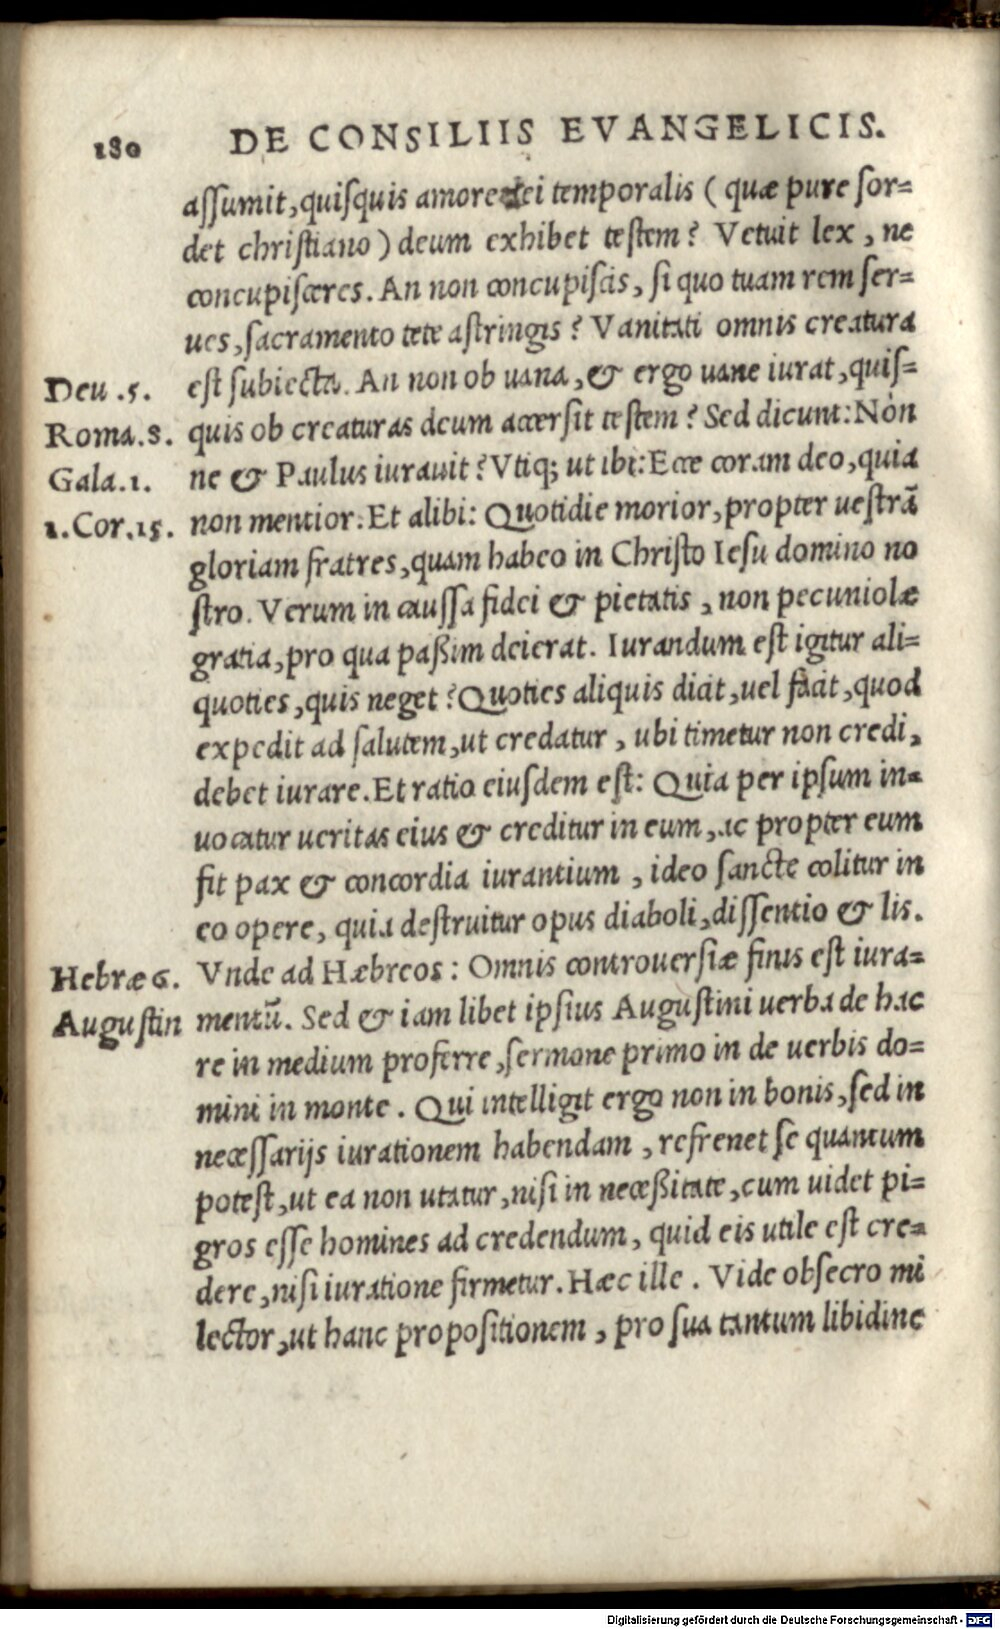 180 DE CONSILIIS EVANGELICIS.
aſſumit, quiſquis amore rei temporalis ( quæ pure ſor=
det chriſtiano ) deum exhibet teſtem? Vetuit lex, ne
concupiſceres. An non concupiſcis, ſi quo tuam rem ſer=
ues, ſacramento tete aſtringis? Vanitati omnis creatura
Deu .5. eſt ſubiecta. An non ob uana, & ergo uane iurat, quiſ=
Roma.8. quis ob creaturas deum accerſit teſtem? Sed dicunt: Non
Gala.1. ne & Paulus iurauit? Vtiq; ut ibi: Ecce coram deo, quia
1.Cor.15. non mentior. Et alibi: Quotidie morior, propter ueſtrā
gloriam fratres, quam habeo in Chriſto Ieſu domino no
ſtro. Verum in cauſſa fidei & pietatis, non pecuniolæ
gratia, pro qua paßim deierat. Iurandum eſt igitur ali=
quoties, quis neget? Quoties aliquis dicit, uel facit, quod
expedit ad ſalutem, ut credatur, ubi timetur non credi,
debet iurare. Et ratio eiuſdem eſt: Quia per ipſum in=
uocatur ueritas eius & creditur in eum, ac propter eum
fit pax & concordia iurantium, ideo ſancte colitur in
eo opere, quia deſtruitur opus diaboli, diſſentio & lis.
Hebræ 6. Vnde ad Hæbreos: Omnis controuerſiæ finis eſt iura=
Auguſtin mentū. Sed & iam libet ipſius Auguſtini uerba de hac
re in medium proferre, ſermone primo in de uerbis do=
mini in monte. Qui intelligit ergo non in bonis, ſed in
neceſſarijs iurationem habendam, refrenet ſe quantum
poteſt, ut ea non utatur, niſi in neceßitate, cum uidet pi=
gros eſſe homines ad credendum, quid eis utile eſt cre=
dere, niſi iuratione firmetur. Hæc ille. Vide obſecro mi
lector, ut hanc propoſitionem, pro ſua tantum libidine
Digitalisierung gefördert durch die Deutsche Forschungsgemeinschaft - DFG